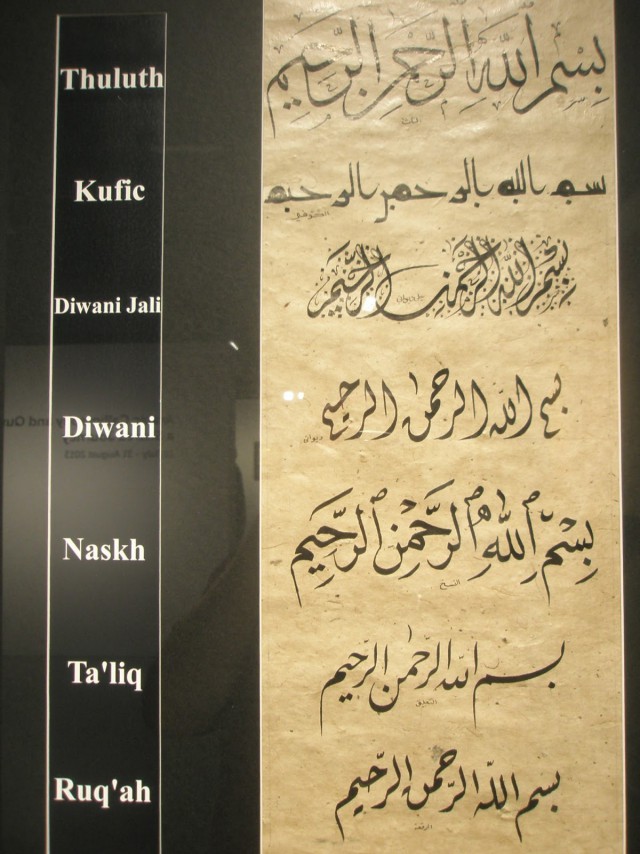 Thuluth
بِسْمِ اللهِ الرَّحْمٰنِ الرَّحِيْمِ
Kufic
بسم الله الرحمن الرحيم
Diwani Jali
بسم الله الرحمن الرحيم
Diwani
بسم الله الرحمن الرحيم
ديوان
Naskh
بِسْمِ اللهِ الرَّحْمٰنِ الرَّحِيْمِ
النسخ
Ta'liq
بسم الله الرحمن الرحيم
التعليق
Ruq'ah
بسم الله الرحمن الرحيم
الرقعة